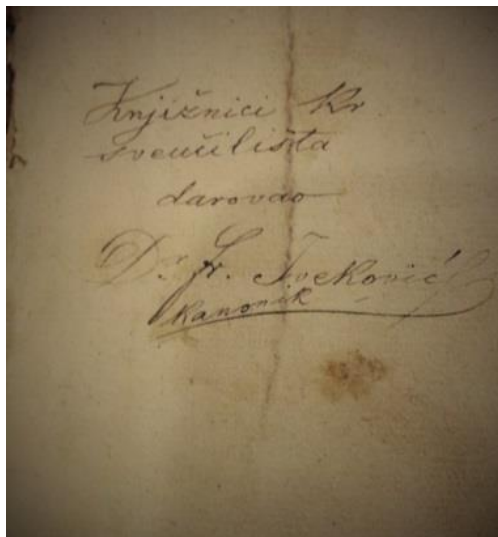 Knjižnici Kr
sveučilišta
darovao
Dr. Fr. Iveković
Kanonik